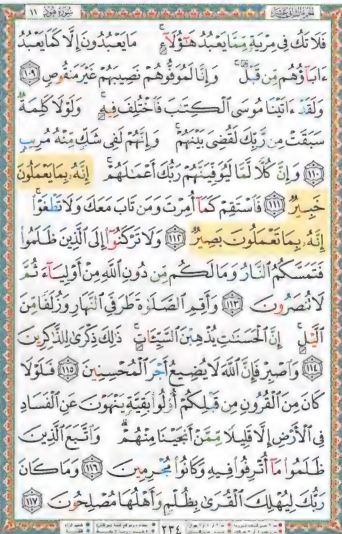 ١١ سورة هود
الجزء الثاني عشر
فَلَا تَكُ فِي مِرْيَةٍ مِّمَّا يَعْبُدُ هَٰٓؤُلَآءِ ۚ مَا يَعْبُدُونَ إِلَّا كَمَا يَعْبُدُ
ءَابَآؤُهُم مِّن قَبْلُ ۚ وَإِنَّا لَمُوَفُّوهُمْ نَصِيبَهُمْ غَيْرَ مَنقُوصٍ ١٠٩
وَلَقَدْ ءَاتَيْنَا مُوسَى ٱلْكِتَٰبَ فَٱخْتُلِفَ فِيهِ ۚ وَلَوْلَا كَلِمَةٌ
سَبَقَتْ مِن رَّبِّكَ لَقُضِىَ بَيْنَهُمْ ۚ وَإِنَّهُمْ لَفِى شَكٍّ مِّنْهُ مُرِيبٍ
١١٠ وَإِنَّ كُلًّا لَّمَّا لَيُوَفِّيَنَّهُمْ رَبُّكَ أَعْمَٰلَهُمْ ۚ إِنَّهُۥ بِمَا يَعْمَلُونَ
خَبِيرٌ ١١١ فَٱسْتَقِمْ كَمَآ أُمِرْتَ وَمَن تَابَ مَعَكَ وَلَا تَطْغَوْا۟ ۚ
إِنَّهُۥ بِمَا تَعْمَلُونَ بَصِيرٌ ١١٢ وَلَا تَرْكَنُوٓا۟ إِلَى ٱلَّذِينَ ظَلَمُوا۟
فَتَمَسَّكُمُ ٱلنَّارُ وَمَا لَكُم مِّن دُونِ ٱللَّهِ مِنْ أَوْلِيَآءَ ثُمَّ
لَا تُنصَرُونَ ١١٣ وَأَقِمِ ٱلصَّلَوٰةَ طَرَفَىِ ٱلنَّهَارِ وَزُلَفًا مِّنَ
ٱلَّيْلِ ۚ إِنَّ ٱلْحَسَنَٰتِ يُذْهِبْنَ ٱلسَّيِّـَٔاتِ ۚ ذَٰلِكَ ذِكْرَىٰ لِلذَّٰكِرِينَ
١١٤ وَٱصْبِرْ فَإِنَّ ٱللَّهَ لَا يُضِيعُ أَجْرَ ٱلْمُحْسِنِينَ ١١٥ فَلَوْلَا
كَانَ مِنَ ٱلْقُرُونِ مِن قَبْلِكُمْ أُو۟لُوا۟ بَقِيَّةٍ يَنْهَوْنَ عَنِ ٱلْفَسَادِ
فِى ٱلْأَرْضِ إِلَّا قَلِيلًا مِّمَّنْ أَنجَيْنَا مِنْهُمْ ۗ وَٱتَّبَعَ ٱلَّذِينَ
ظَلَمُوا۟ مَآ أُتْرِفُوا۟ فِيهِ وَكَانُوا۟ مُجْرِمِينَ ١١٦ وَمَا كَانَ
رَبُّكَ لِيُهْلِكَ ٱلْقُرَىٰ بِظُلْمٍ وَأَهْلُهَا مُصْلِحُونَ ١١٧
٢٣٤